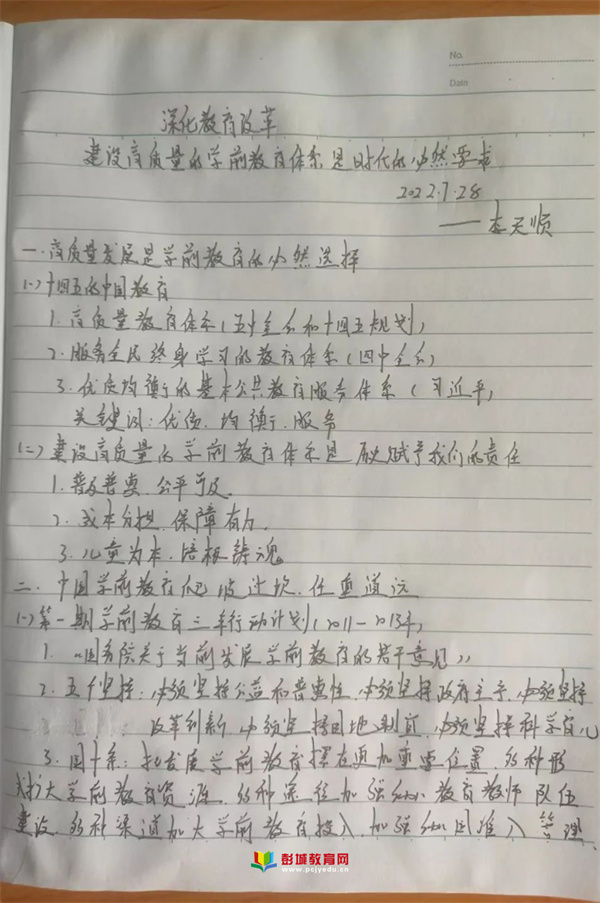 No.
Date
深化教育改革
建设高质量的学前教育体系是时代的必然要求
2022.7.28
——李天顺
一.高质量发展是学前教育的必然选择
(一)十四五的中国教育
1.高质量教育体系(五中全会和十四五规划)
2.服务全民终身学习的教育体系(四中全会)
3.优质均衡的基本公共教育服务体系(习近平)
关键词:优质.均衡.服务
(二)建设高质量的学前教育体系是历史赋予我们的责任
1.普及普惠.公平可及.
2.成本分担.保障有力.
3.儿童为本.培根铸魂
二.中国学前教育爬坡过坎.任重道远
(一)第一期学前教育三年行动计划(2011-2013年)
1.《国务院关于当前发展学前教育的若干意见》
2.五个坚持:必须坚持公益和普惠性.必须坚持政府主导.必须坚持
改革创新.必须坚持因地制宜.必须坚持科学育儿
3.国十条:把发展学前教育摆在更加重要位置.多种形
式扩大学前教育资源.多种途径加强幼儿教育教师队伍
建设.多种渠道加大学前教育投入.加强幼儿园准入管理.
彭城教育网
www.pcjyedu.cn